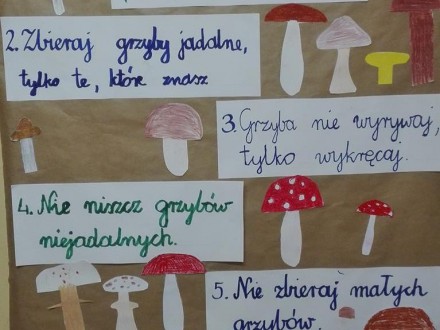 2. Zbieraj grzyby jadalne,
tylko te, które znasz
3. Grzyba nie wyrywaj,
tylko wykręcaj.
4. Nie niszcz grzybów
niejadalnych.
5. Nie zbieraj małych
grzybów.